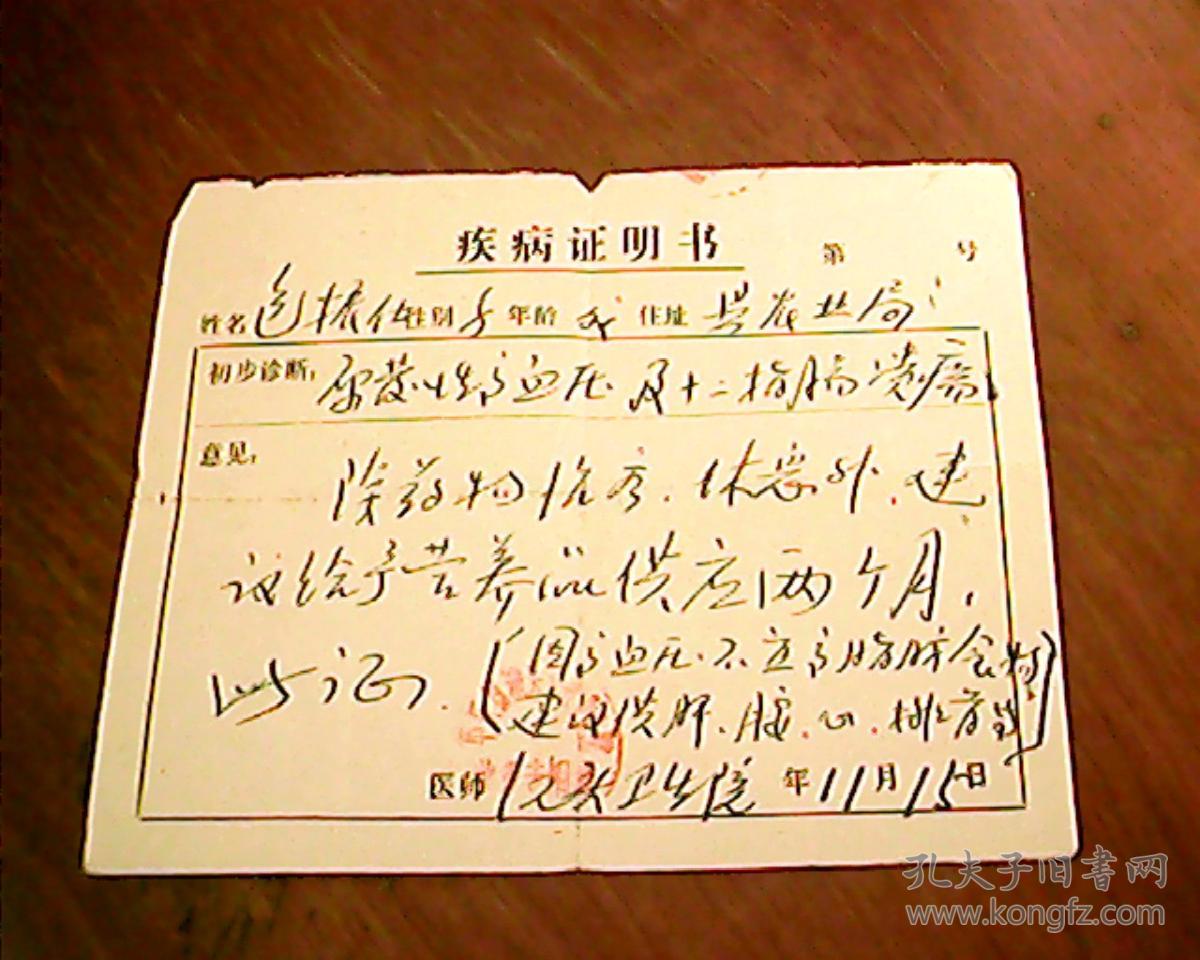 疾病证明书 第 号
姓名 性别 年龄 成 住址 县农业局
初步诊断: 原发性高血压及十二指肠溃疡
意见:
除药物治疗、休息外,建
议给予营养品供应两个月,
此证.
(因高血压.不宜高脂肪食物
建议供肝、腰、心、排骨等)
医师 卫生院 年11月15日
孔夫子旧書网
www.kongfz.com